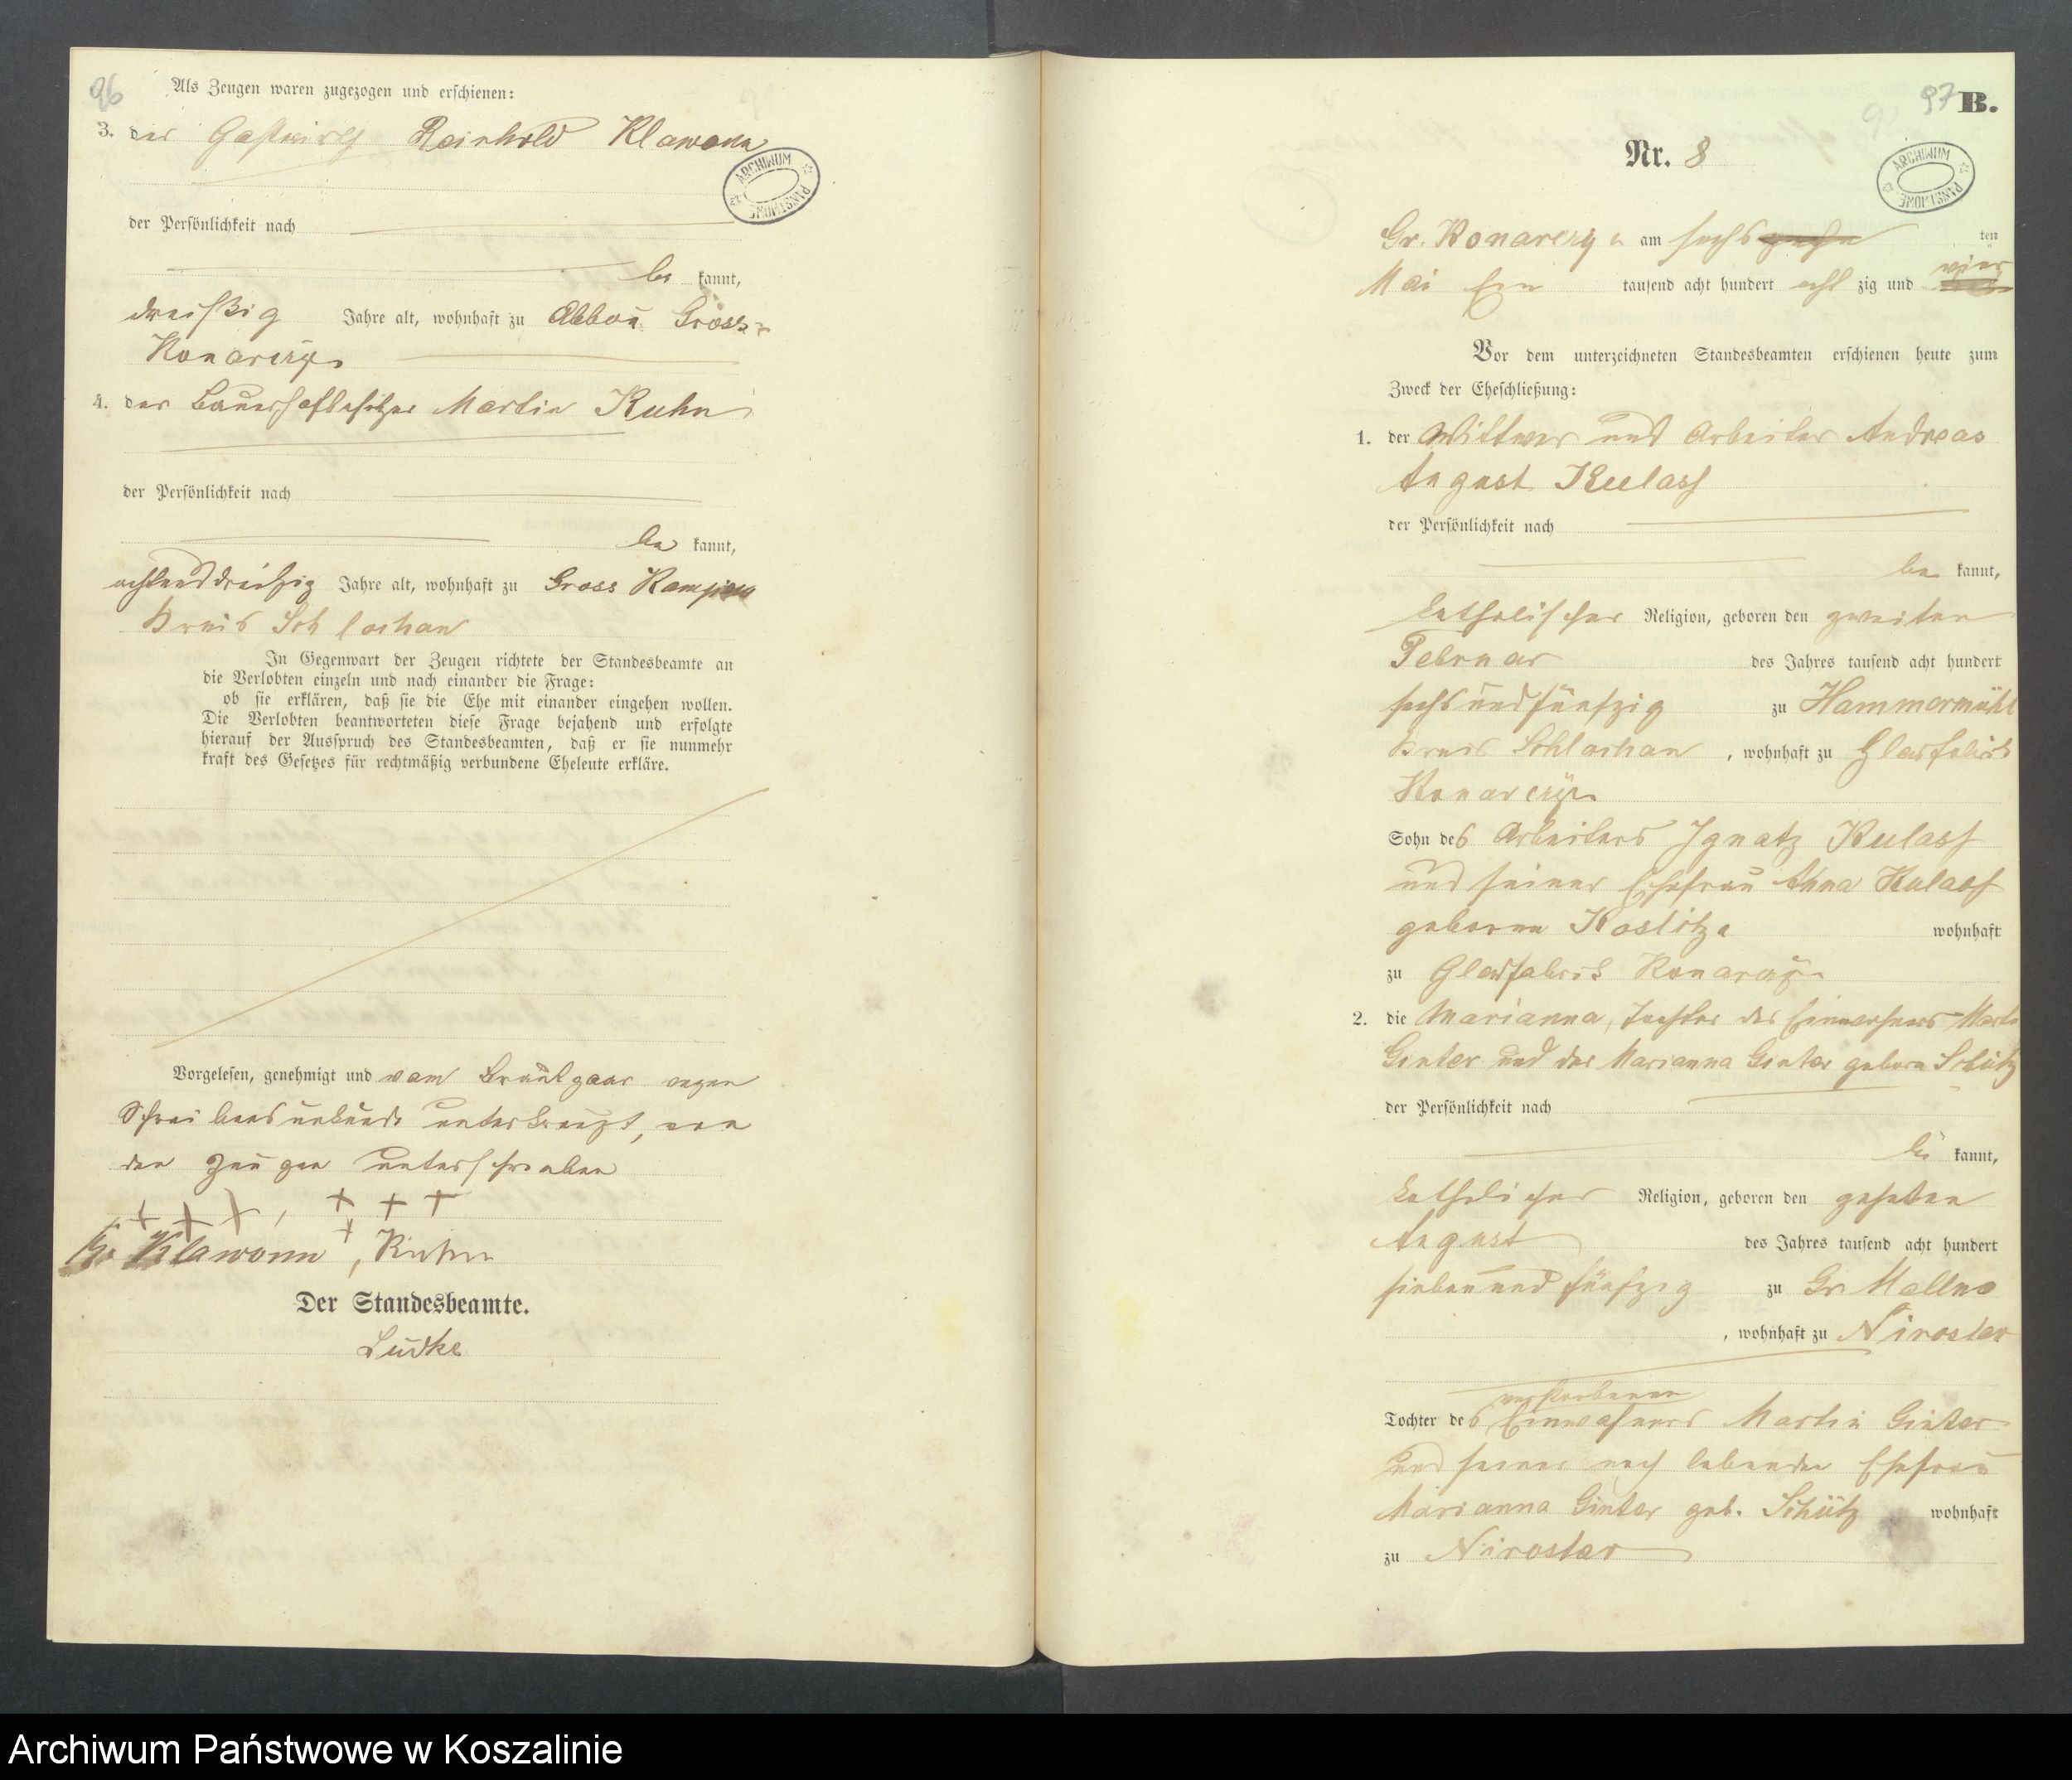 96
Als Zeugen waren zugezogen und erschienen:
3. der Gastwirth Reinhold Klawonn
der Persönlichkeit nach
be kannt,
dreißig Jahre alt, wohnhaft zu Abbau Gross
Konarczyn
4. der Bauerhofbesitzer Martin Kuhn
der Persönlichkeit nach
be kannt,
achtunddreißig Jahre alt, wohnhaft zu Gross
Kreis Schlochau
In Gegenwart der Zeugen richtete der Standesbeamte an
die Verlobten einzeln und nach einander die Frage:
ob sie erklären, daß sie die Ehe mit einander eingehen wollen.
Die Verlobten beantworteten diese Frage bejahend und erfolgte
hierauf der Ausspruch des Standesbeamten, daß er sie nunmehr
kraft des Gesetzes für rechtmäßig verbundene Eheleute erkläre.
Vorgelesen, genehmigt und vom Brautpaar wegen
Schreibensunkunde unterkreuzt, von
den Zeugen unterschrieben
+ + +, + + +
+
R. Klawonn, Kuhn
Der Standesbeamte.
Lüdke
ARCHIWUM PAŃSTWOWE
97 B.
Nr. 8
ARCHIWUM PAŃSTWOWE
Gr. Konarczyn am sechs ten
vier
Mai Ein tausend acht hundert acht zig und
Vor dem unterzeichneten Standesbeamten erschienen heute zum
Zweck der Eheschließung:
1. der Wittwer und Arbeiter Andreas
August Kulass
der Persönlichkeit nach
be kannt,
katholischer Religion, geboren den zweiten
Februar des Jahres tausend acht hundert
sechsundfünfzig zu Hammermühl
Kreis Schlochau, wohnhaft zu Glasfabrik
Konarczyn
Sohn des Arbeiters Ignatz Kulass
und seiner Ehefrau Anna Kulass
geborne Koslitza wohnhaft
zu Glasfabrik Konarczyn
2. die Marianna, Tochter des Einwohners Martin
Ginter und der Marianna Ginter geborn Schütz
der Persönlichkeit nach
be kannt,
katholischer Religion, geboren den zehnten
August des Jahres tausend acht hundert
siebenundfünfzig zu Gr. Mellno
, wohnhaft zu Niroster
verstorbenen
Tochter des Einwohners Martin Ginter
und seiner noch lebenden Ehefrau
Marianna Ginter geb. Schütz wohnhaft
zu Niroster
Archiwum Państwowe w Koszalinie